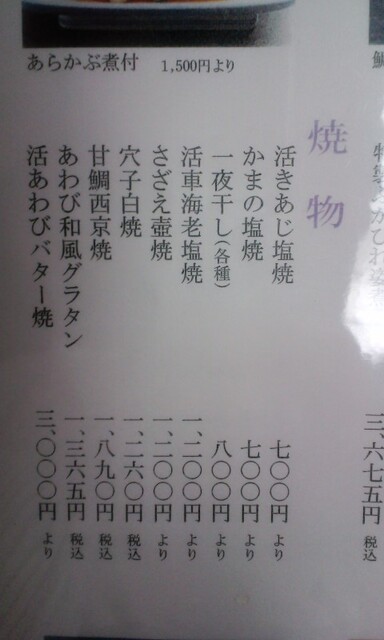 あらかぶ煮付 1,500円より
焼物
活きあじ塩焼 七〇〇円より
かまの塩焼 七〇〇円より
一夜干し(各種) 八〇〇円より
活車海老塩焼 一、二〇〇円より
さざえ壺焼 一、二〇〇円より
穴子白焼 一、二六〇円税込
甘鯛西京焼 一、八九〇円税込
あわび和風グラタン 一、三六五円税込
活あわびバター焼 三、〇〇〇円より
三、六七五円税込